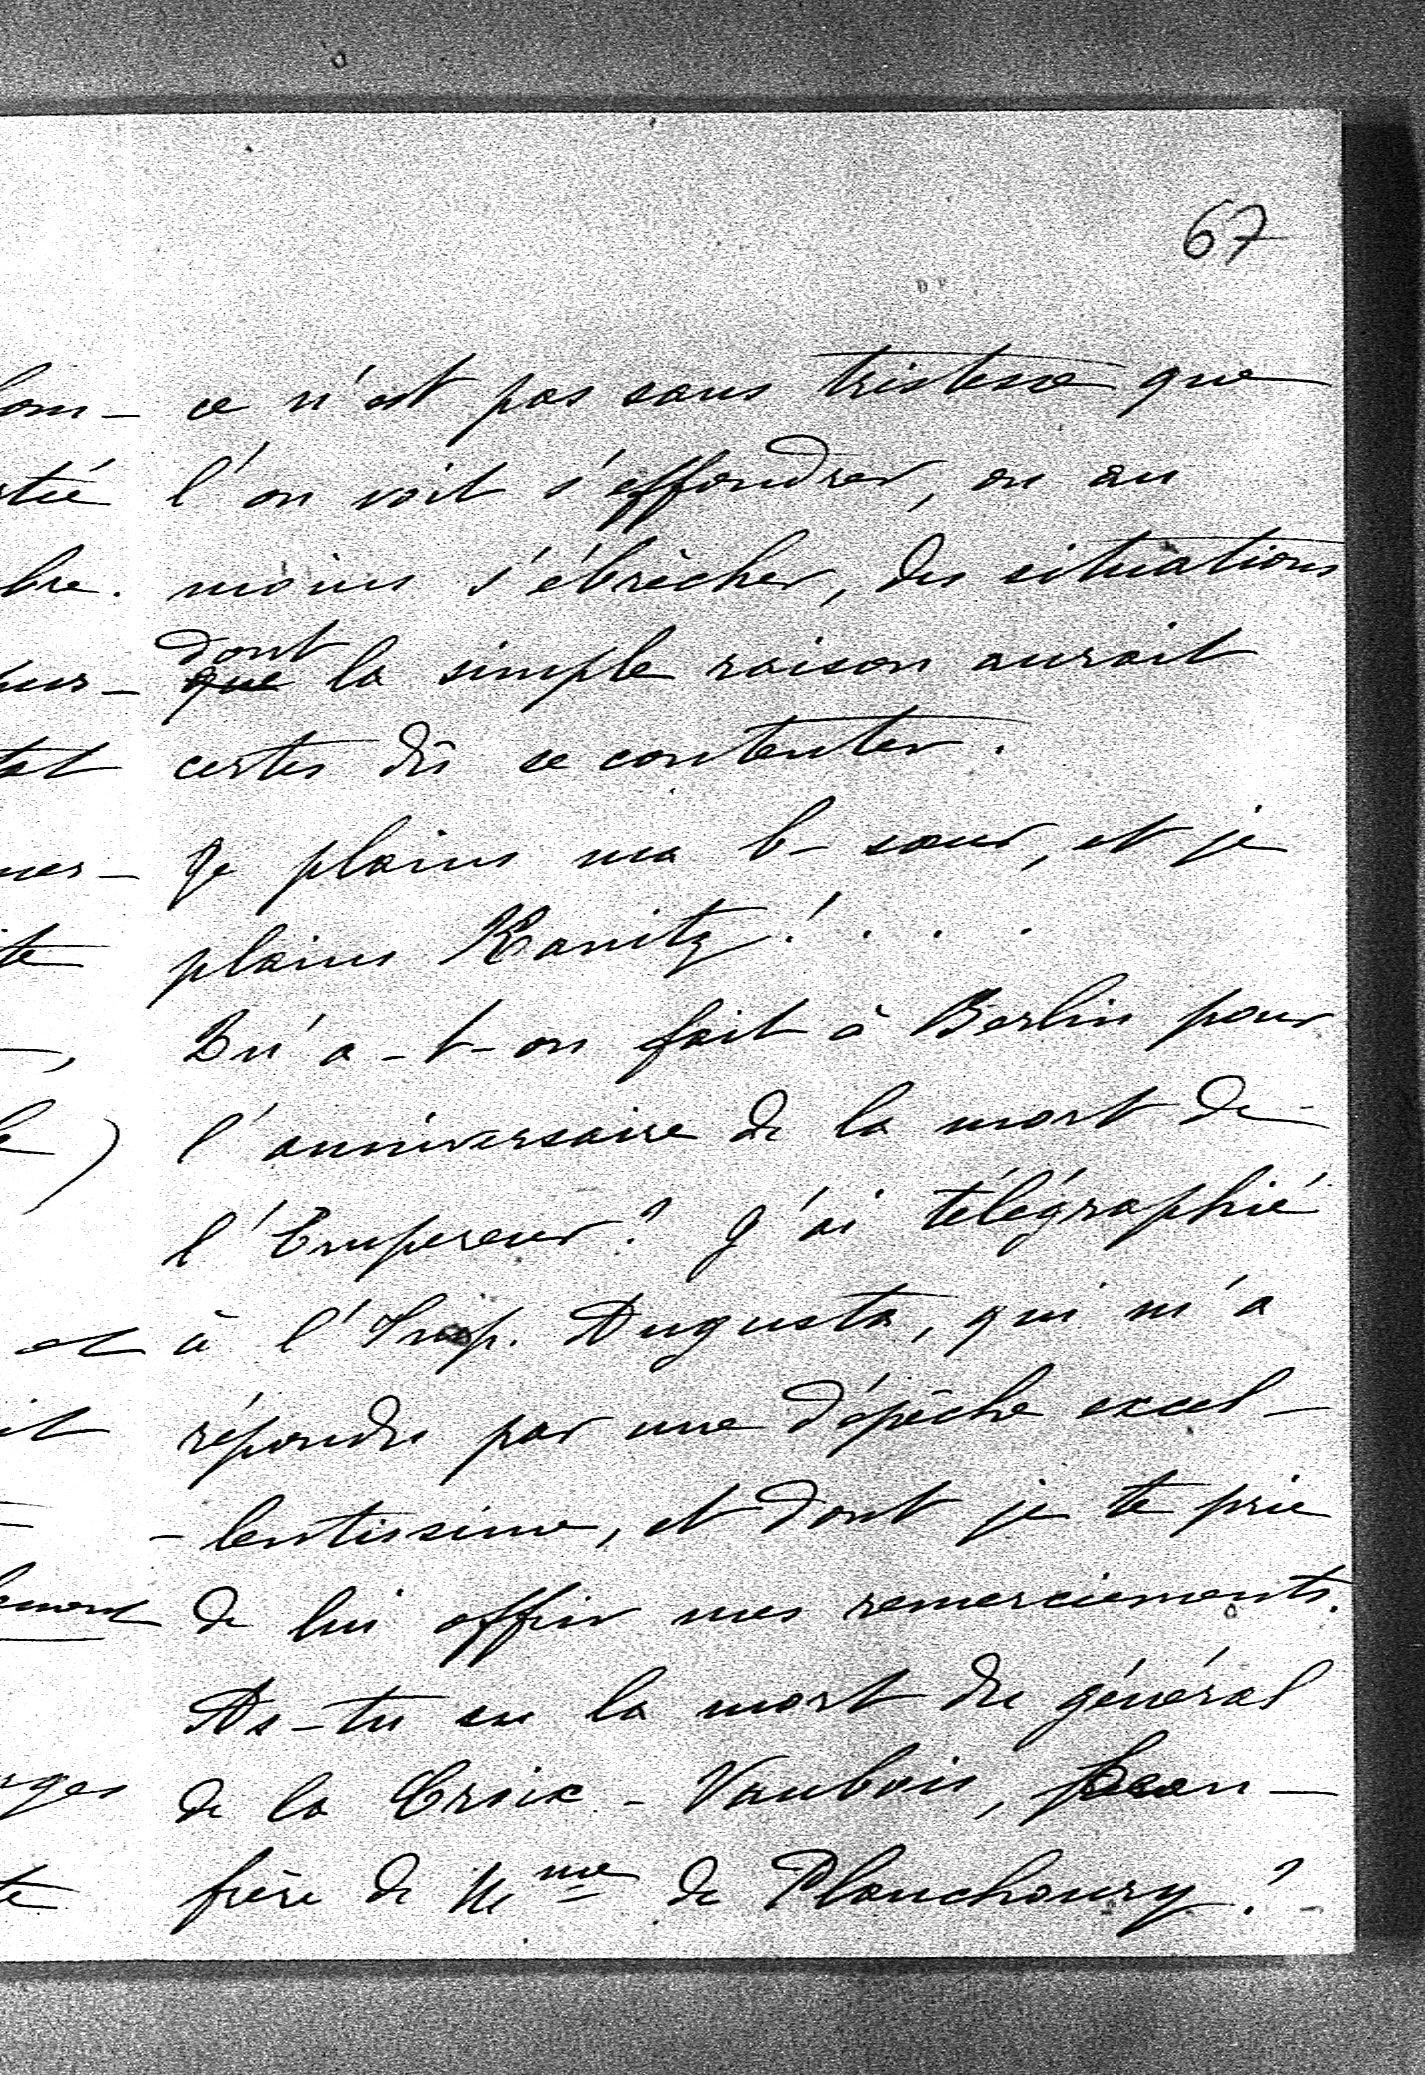 67
ce n'est pas sans tristesse que
l'on voit s'effondrer, ou au
moins s'ébrècher, des situations
dont
que la simple raison aurait
certes dû se contenter.
Je plains ma b- sœur, et je
plains Kanitz! . . .
Qu'a-t-on fait à Berlin pour
l'anniversaire de la mort de
l'Empereur? J'ai télégraphié
à l'Imp. Augusta, qui m'a
répondu par une dépêche excel-
-lentissime, et dont je te prie
de lui offrir mes remerciements.
As-tu su la mort du général
de la Croix-Vaubois, beau-
frère de Mme de Planchoury?